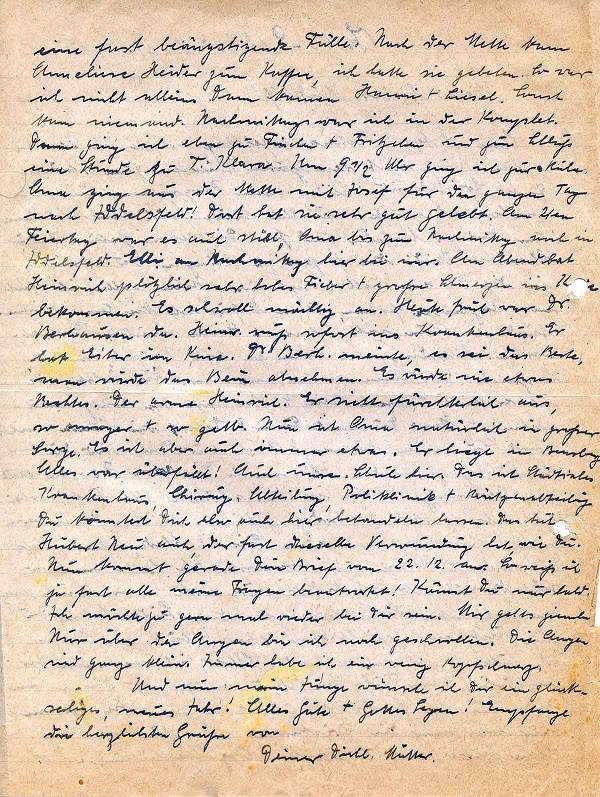 eine fast beängstigende Fülle. Nach der Mette kam
Anneliese Heider zum Kaffee, ich hatte sie gebeten. So war
ich nicht allein. Dann kamen Hanni + Liesel. Sonst
kam niemand. Nachmittags war ich in der Komplet.
Dann ging ich eben zu Finchen + Fritzchen und zum Schluß
eine Stunde zu T. Klara. Um 9 1/2 Uhr ging ich zur Ruhe.
Anna ging aus der Mette mit Josef für den ganzen Tag
nach Iddelsfeld! Dort hat sie sehr gut gelebt. Am 2ten
Feiertag war es auch still, Anna bis zum Nachmittag noch in
Iddelsfeld. Elli am Nachmittag hier bei mir. Am Abend hat
Heinrich plötzlich sehr hohes Fieber + große Schmerzen im
bekommen. Es schwoll mächtig an. Heute früh war Dr.
Berhausen da. Heinr. muß sofort ins Krankenhaus. Er
hat Eiter im Knie. Dr. Berh. meinte, es sei das Beste,
man würde das Bein abnehmen. Es würde nie etwas
Rechtes. Der arme Heinrich. Er sieht fürchterlich aus,
so mager + so gelb. Nun ist Anna natürlich in großer
Sorge. Es ist aber auch immer etwas. Er liegt in
Alles war überfüllt! Auch unsre Schule hier. Das ist Städtisches
Krankenhaus, Chirurg. Abteilung, Poliklinik + Röntgenabteilung
Du könntest Dich also auch hier behandeln lassen. Das tut
Hubert Neu auch, der fast dieselbe Verwundung hat, wie Du.
Nun kommt gerade Dein Brief vom 22.12. an. So weiß ich
ja fast alle meine Fragen beantwortet! Kämst Du nur bald.
Ich möchte zu gern mal wieder bei Dir sein. Mir gehts
Nur über den Augen bin ich noch geschwollen. Die Augen
sind ganz klein. Immer habe ich ein wenig Kopfschmerz.
Und nun mein Junge wünsche ich Dir ein glück-
seliges, neues Jahr! Alles Gute + Gottes Segen! Empfange
die herzlichsten Grüße von
Deiner Dich l. Mutter.